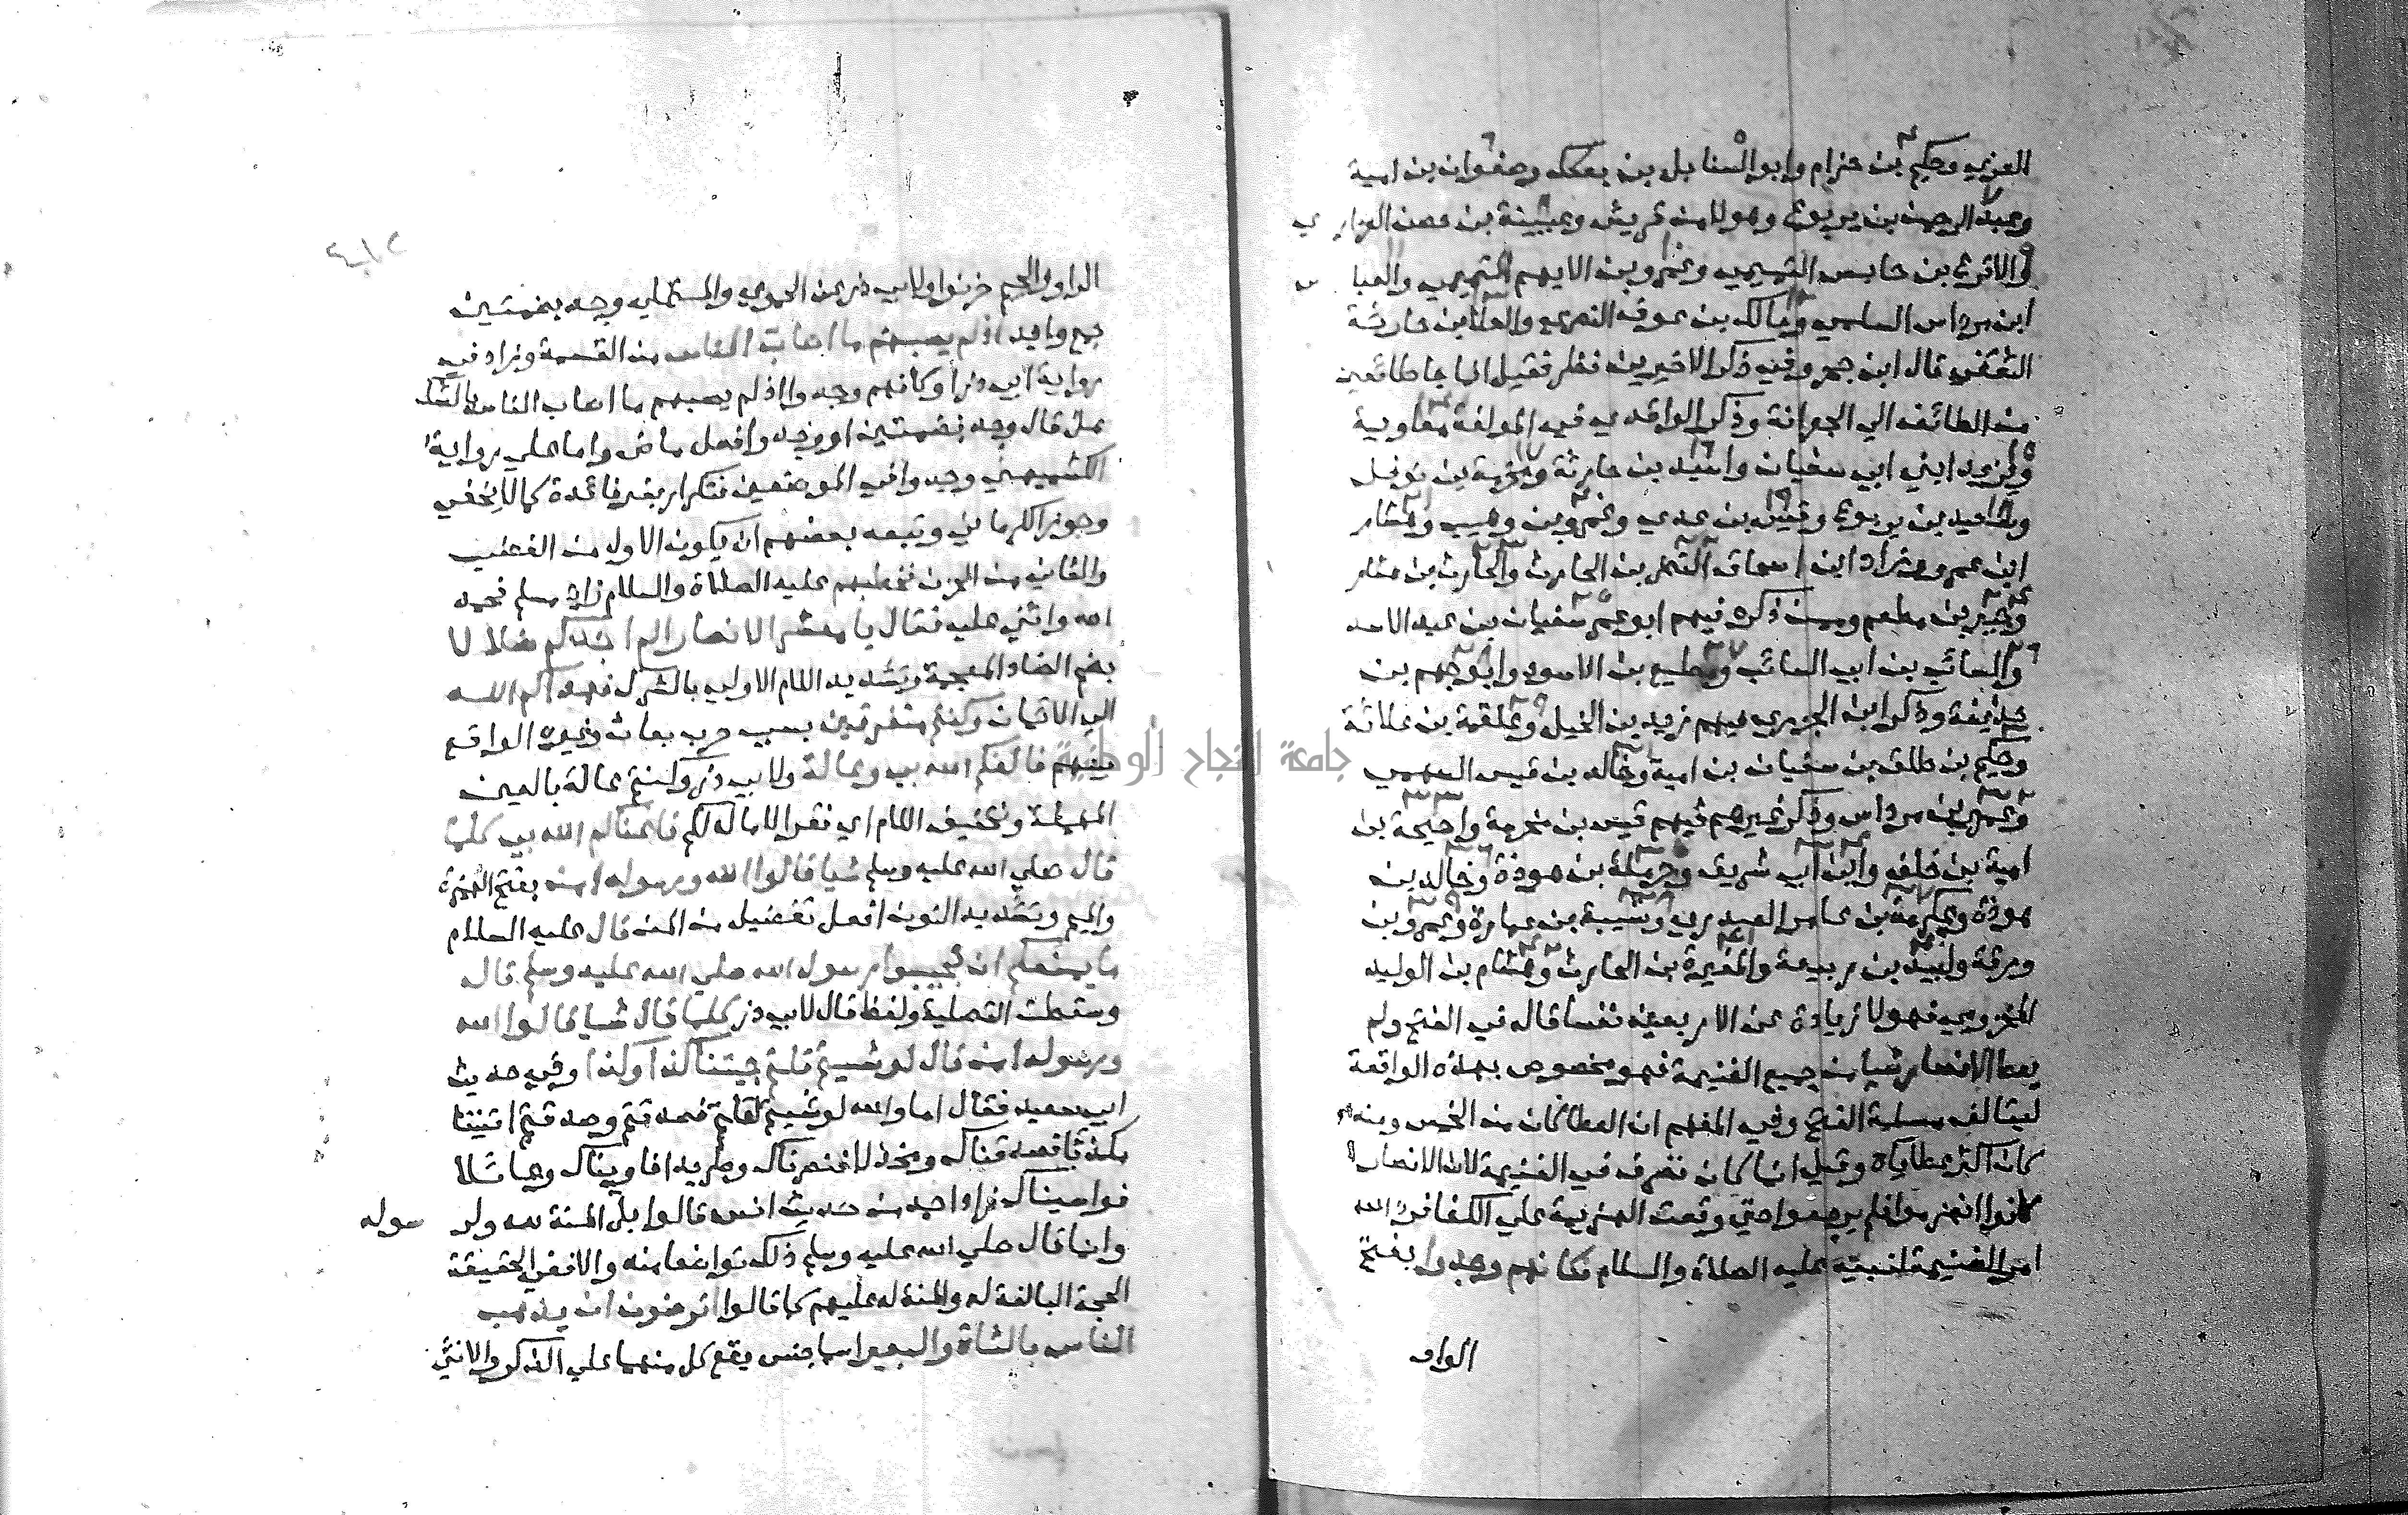 العزي وحكيم بن حزام وابو السنابل بن بعكك وصفوان بن امية
وعبد الرحمن بن يربوع وهولا من قريش وعيينة بن حصن الفزاري
والاقرع بن حابس التميمي وعمرو بن الايهم التميمي والعباس
ابن مرداس السلمي ومالك بن عوف النصري والعلا بن حارثة
الثقفي قال ابن حجر وفي ذكر الاخيرين نظر فقيل انما جا طائعين
من الطائف الي الجعرانة وذكر الواقدي في المولفة معاوية
ويزيد ابني ابي سفيان واسيد بن حارثة ومخرمة بن نوفل
وسعيد بن يربوع وقيس بن عدي وعمرو بن وهب وهشام
ابن عمرو وزاد ابن اسحاق النضر بن الحارث والحارث بن هشام
وجبير بن مطعم وممن ذكره فيهم ابو عمر سفيان بن عبد الاسد
والسائب بن ابي السائب ومطيع بن الاسود وابو جهم بن
حذيفة وذكر ابن الجوزي فيهم زيد بن الخيل وعلقمة بن علاثة
وحكيم بن طلق بن سفيان بن امية وخالد بن قيس السهمي
وعمير بن مرداس وذكر غيرهم فيهم قيس بن مخرمة واحيحة بن
امية بن خلف وابن ابي شريق وحرملة بن هوذة وخالد بن
هوذة وعكرمة بن عامر العبدري وشيبة بن عمارة وعمرو بن
ورقة ولبيد بن ربيعة والمغيرة بن الحارث وهشام بن الوليد
المخزومي فهولا زيادة عن الاربعين نفسا قاله في الفتح ولم
يعط الانصار شيا من جميع الغنيمة فهو مخصوص بهذه الواقعة
ليتالف مسلمة الفتح وفي المفهم ان العطا كان من الخمس ومنه
كان اكثر عطاياه وقيل انما كان تصرف في الغنيمة لان الانصار
كانوا انهزموا فلم يرجعوا حتي وقعت الهزيمة علي الكفار فرد الله
امر الغنيمة لنبيه عليه الصلاة والسلام فكانهم وجدوا بفتح
الواو
الواو والجيم حزنوا ولابي ذر عن الحموي والمستملي وجد بضمتين
جمع واجد اذ لم يصبهم ما اصاب الناس من القسمة وزاد في
رواية ابي ذر او كانهم وجدوا اذ لم يصبهم ما اصاب الناس بالشك
هل قال وجد بضمتين او وجدوا فعل ماض واما علي رواية
الكشميهني وجدوا في الموضعين فتكرار بغير فائدة كما لا يخفي
وجوز الكرماني وتبعه بعضهم ان يكون الاول من الغضب
والثاني من الحزن فخطبهم عليه الصلاة والسلام زاد مسلم فحمد
الله واثني عليه فقال يا معشر الانصار الم اجدكم ضلالا
بضم الضاد المعجمة وتشديد اللام الاولي بالشرك فهداكم الله
الي الايمان وكنتم متفرقين بسبب حرب بعاث وغيره الواقع
بينهم فالفكم الله بي وعالة ولابي ذر وكنتم عالة بالعين
المهملة وتخفيف اللام اي فقرا لا مال لكم فاغناكم الله بي كلما
قال صلي الله عليه وسلم شيا قالوا الله ورسوله امن بفتح الهمزة
والميم وتشديد النون افعل تفضيل من المن قال عليه السلام
ما يمنعكم ان تجيبوا رسول الله صلي الله عليه وسلم قال
وسقطت التصلية ولفظ قال لابي ذر كلما قال شيا قالوا الله
ورسوله امن قال لو شيتم قلتم جيتنا كذا وكذا وفي حديث
ابي سعيد فقال اما والله لو شيتم لقلتم فصدقتم وصدقتم اتيتنا
مكذبا فصدقناك ومخذولا فنصرناك وطريدا فاويناك وعائلا
فواسيناك زاد احمد من حديث انس قالوا بل المنة لله ولرسوله
وانما قال صلي الله عليه وسلم ذلك تواضعا منه والا ففي الحقيقة
الحجة البالغة له والمنة له عليهم كما قالوا اترضون ان يذهب
الناس بالشاة والبعير اسما جنس يقع كل منهما علي الذكر والانثي
جامعة النجاح الوطنية